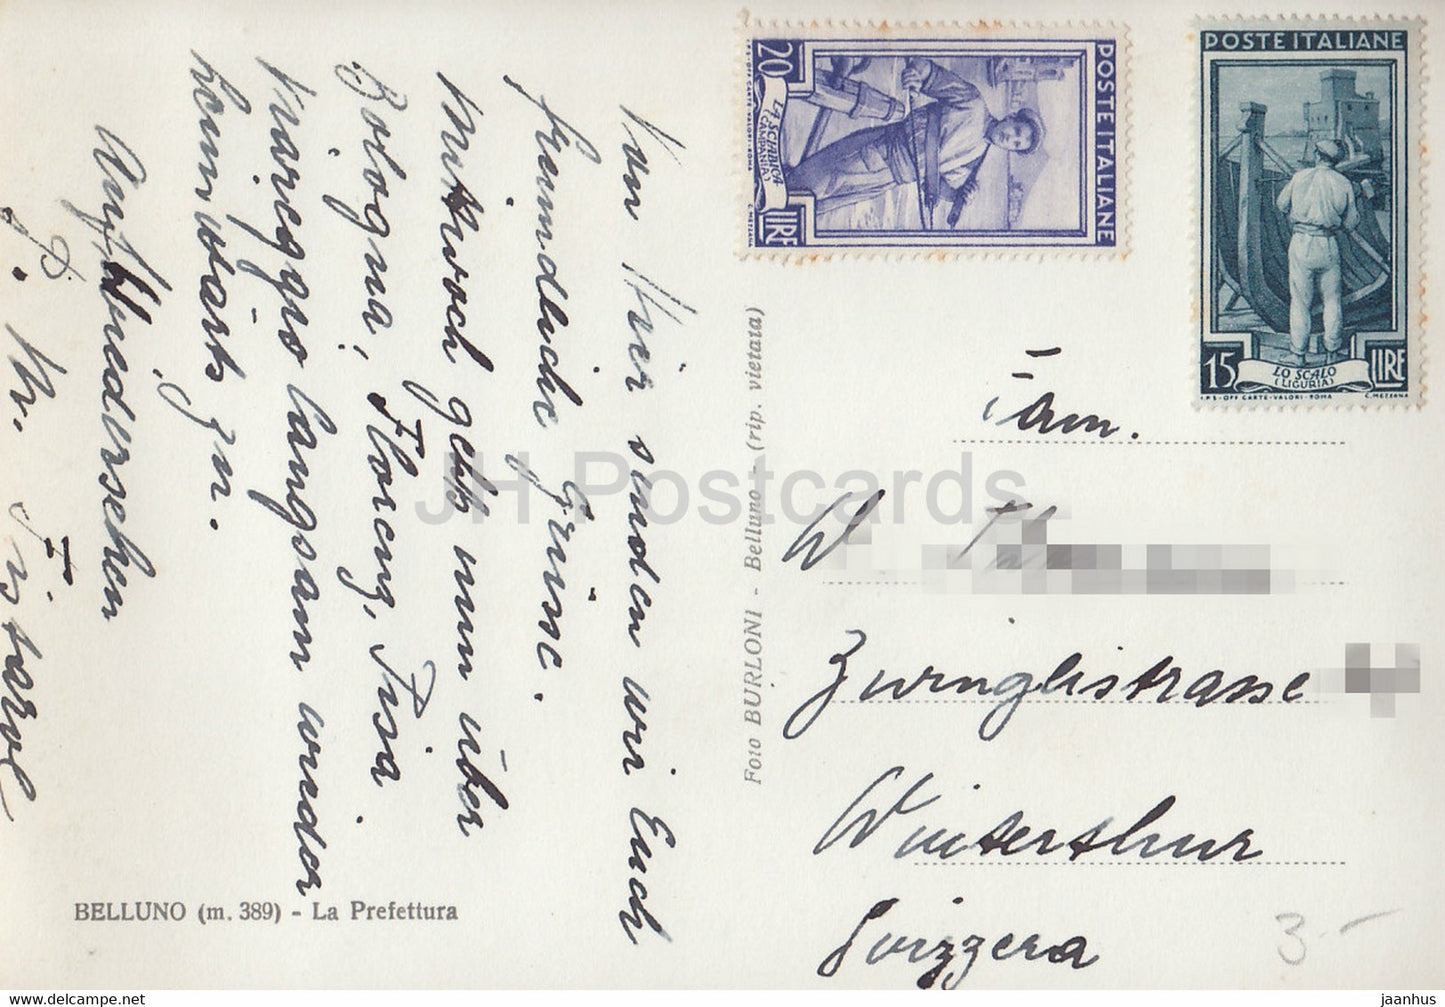 Von Hier senden wir Euch
freundliche Grüsse.
Mittwoch gehts nun über
Bologna, Florenz, Pisa
langsam wieder
heimwärts zu.
Auf Wiedersehen
POSTE ITALIANE
20 LIRE
LA SCIABICA
(CAMPANIA)
I.P.S.-OFF. CARTE-VALORI-ROMA C. MEZZANA
POSTE ITALIANE
15 LIRE
LO SCALO
(LIGURIA)
I.P.S-OFF CARTE-VALORI-ROMA C. MEZZANA
Foto BURLONI - Belluno - (rip. vietata)
Fam.
W
Zwinglistrasse
Winterthur
Svizzera
3.-
BELLUNO (m. 389) - La Prefettura
JH Postcards
www.delcampe.net
jaanhus